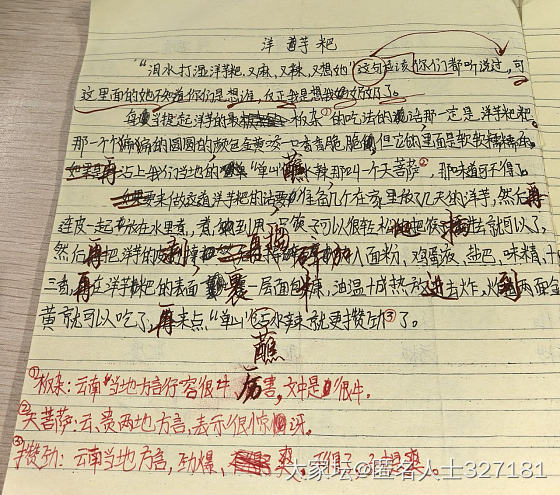 洋芋粑
"泪水打湿洋芋粑,又麻,又辣,又想她"这句应该你们都听说过,可
这里面的她不知道你们是想谁,反正我是想我奶奶了。
每当提起洋芋的最板杂①的吃法的话那一定是洋芋粑粑
那一个个扁扁的圆圆的颜色金黄咬一口香香脆脆但它的里面是软软糯糯的
再沾上我们当地的"单山"蘸水辣那叫一个天菩萨②,那味道可不得了。
要来做这道洋芋粑的话要准备几个在家里放了几天的洋芋,然后再
连皮一起放在水里煮,煮到用筷子可以很轻松地 去就可以了,
然后再把洋芋的皮剥 再 加入面粉,鸡蛋液,盐巴,味精,十
三香,再在洋芋粑的表面裹一层面包糠,油温十成热放进去炸,炸到两面金
黄就可以吃了,再来点"单山"蘸水辣就更攒劲③了。
蘸
①板杂:云南当地方言形容很牛,厉害,文中是很牛。
②天菩萨:云、贵两地方言,表示很惊讶。
③攒劲:云南当地方言,劲爆,爽,
大家坛@匿名人士327181